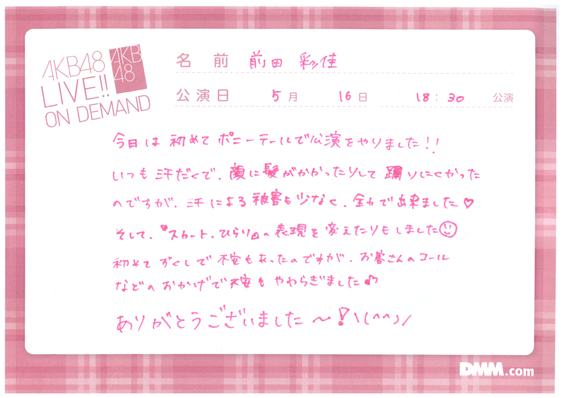 AKB48
LIVE!!
ON DEMAND
AKB
48
名 前 前田 彩佳
公演日 5月 16日 18:30 公演
今日は初めてポニーテールで公演をやりました!!
いつも汗だくで、顔に髪がかかったりして踊りにくかった
のですが、汗による被害も少なく、全力で出来ました♡
そして、『スカート、ひらり』の表現を変えたりもしました☺
初めてづくしで不安もあったのですが、お客さんのコール
などのおかげで不安もやわらぎました♪
ありがとうございました〜!ヽ(^^)ノ
DMM.com